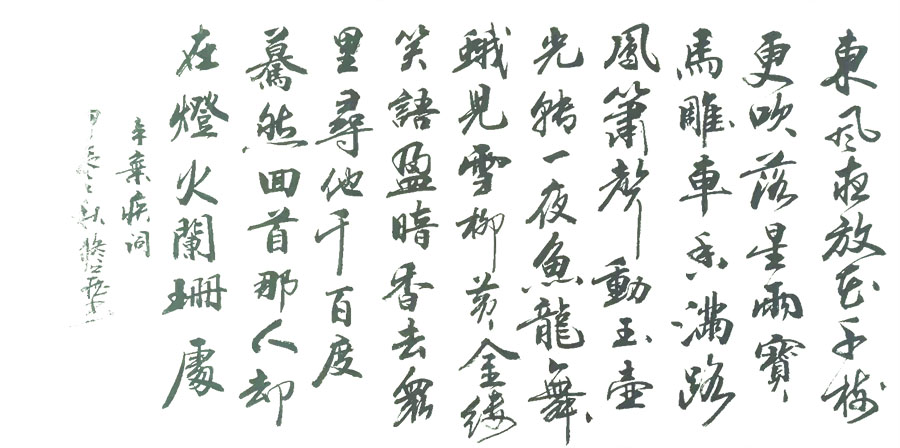 東風夜放花千樹
更吹落星雨寶
馬雕車香滿路
鳳簫聲動玉壺
光轉一夜魚龍舞
蛾見雪柳黃金縷
笑語盈暗香去眾
里尋他千百度
驀然回首那人却
在燈火闌珊處
辛棄疾詞